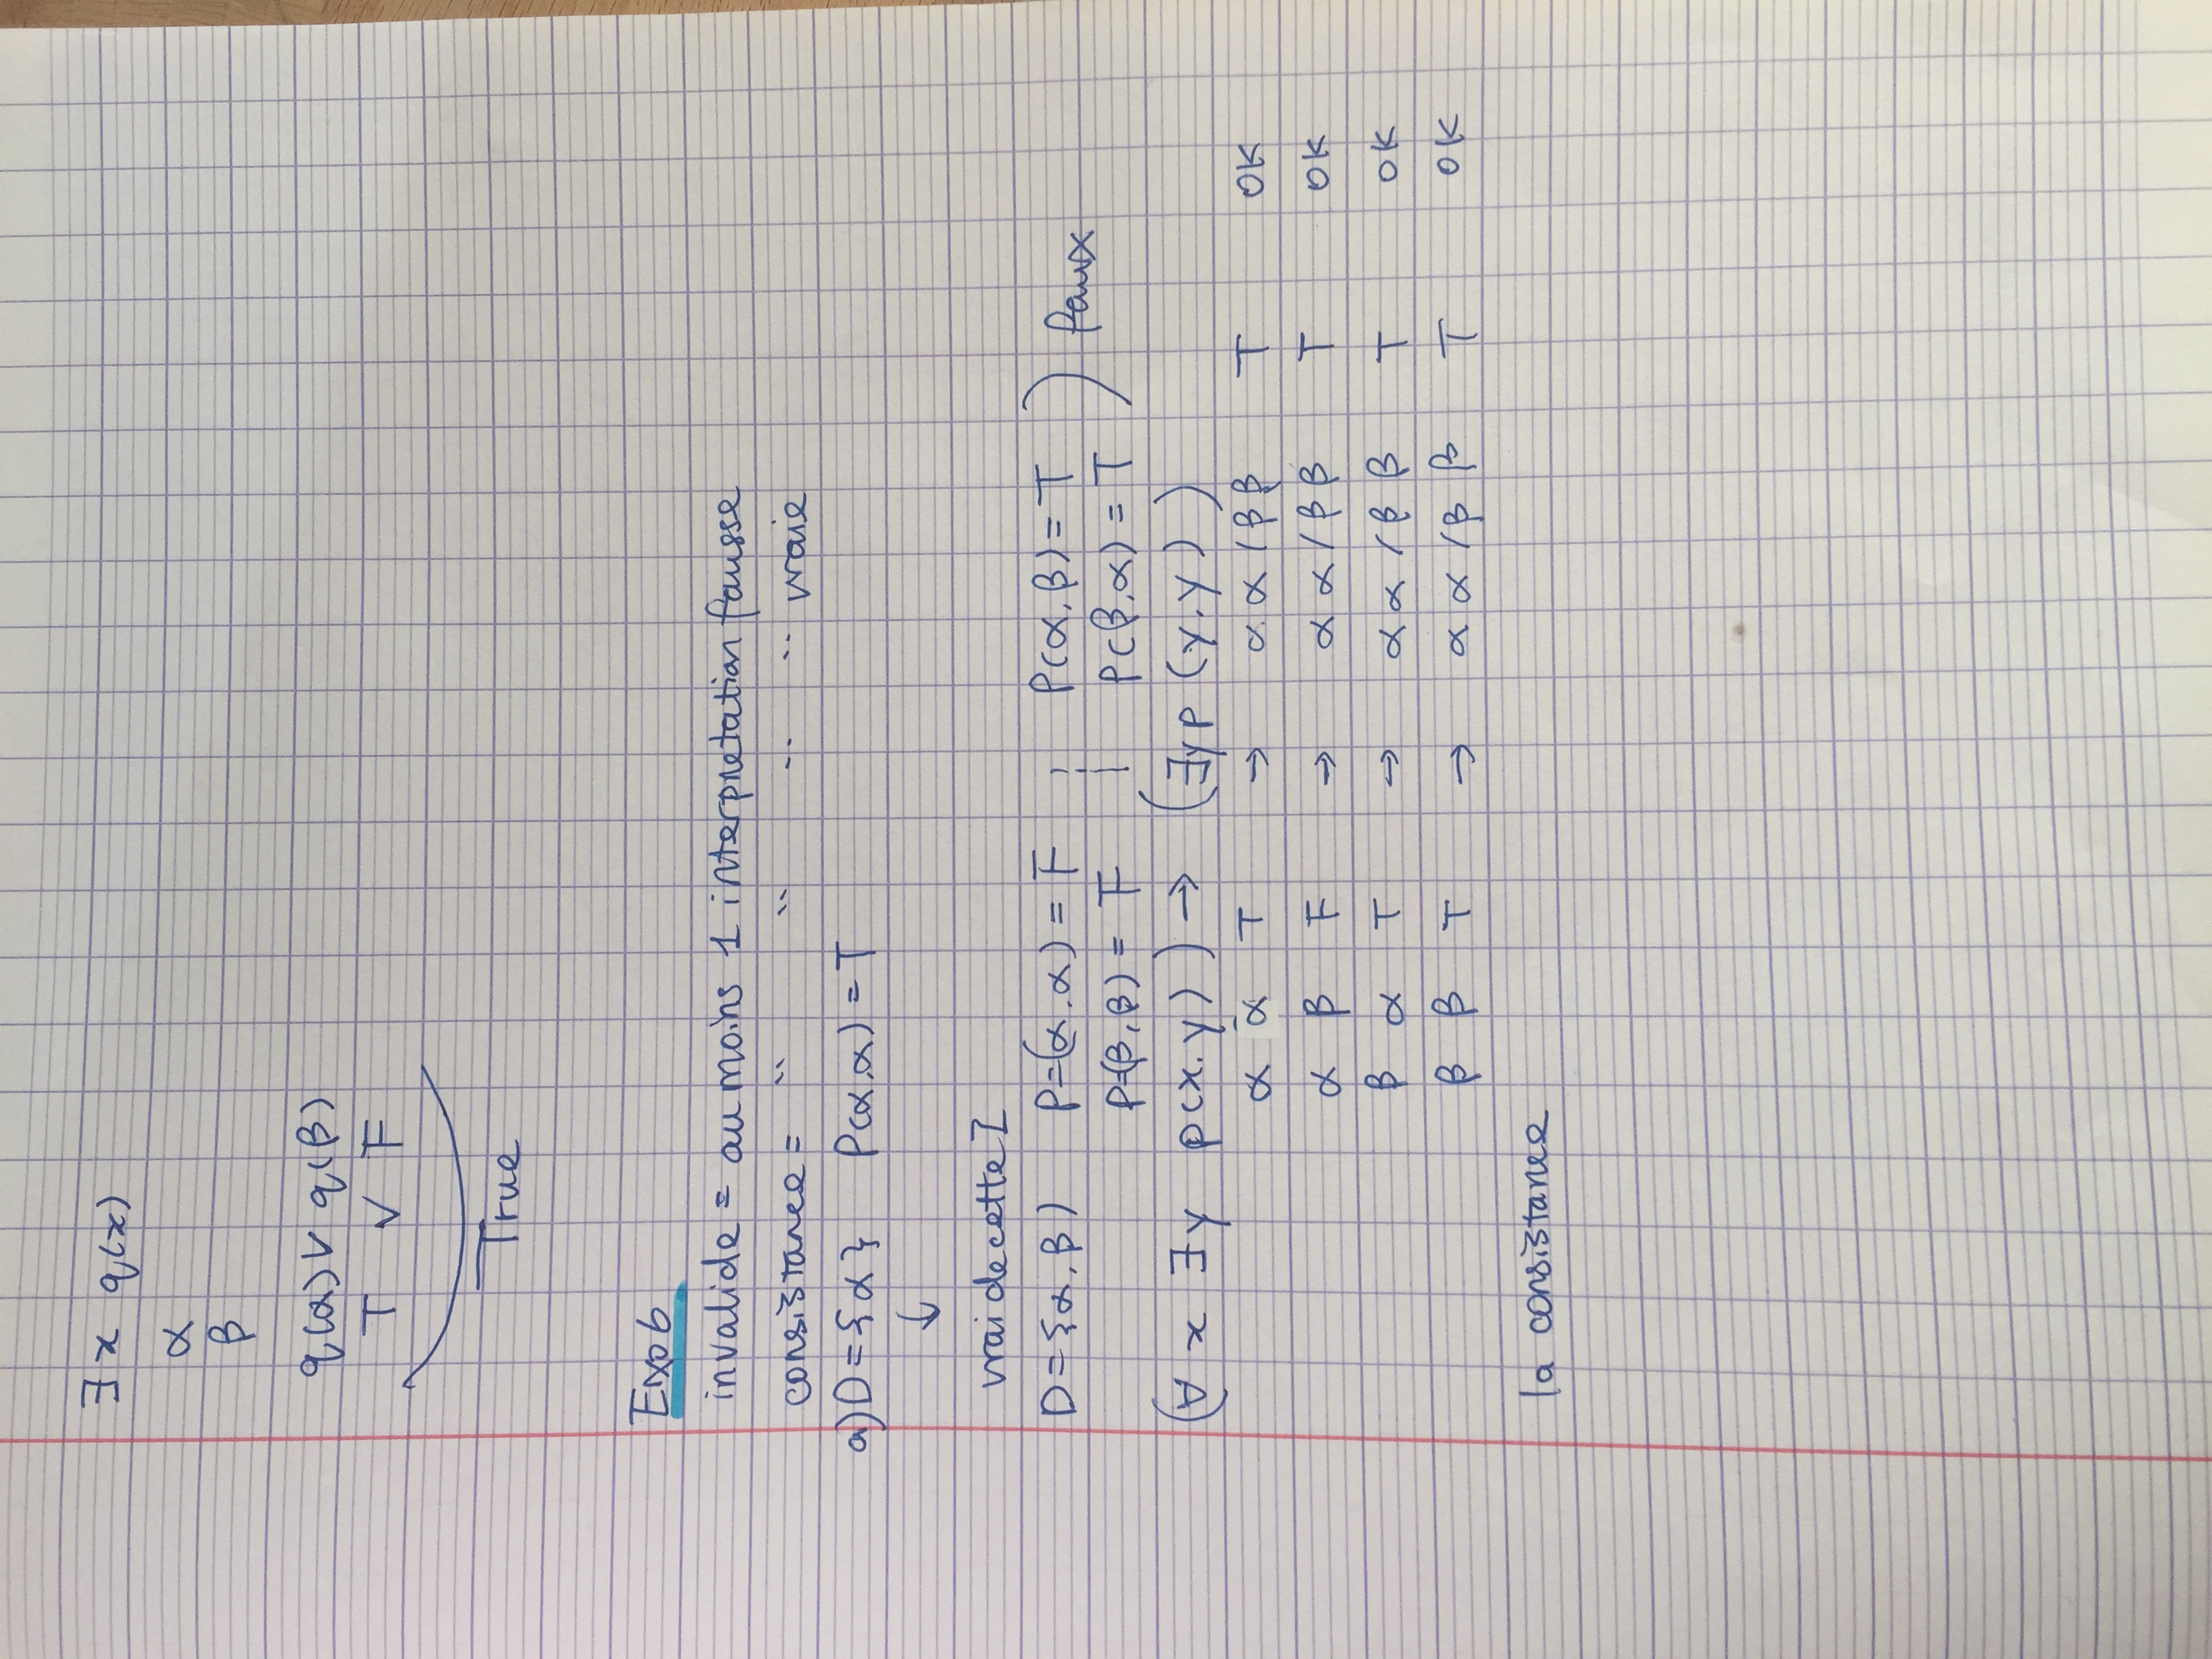 ∃ x q(x)
α
β
q(α) ∨ q(β)
T ∨ F
True
Exo 6
invalide = au moins 1 interpretation fausse
consistance = " " " " vraie
a) D = {α} P(α,α) = T
↓
vrai de cette I
D = {α, β) P=(α,α) = F ; P(α,β) = T ) faux
P=(β,β) = F | P(β,α) = T
(∀ x ∃y p(x,y)) → (∃y p (y,y))
α α T → α α / β β T OK
α β F → α α / β β T OK
β α T → α α / β β T OK
β β T → α α / β β T OK
la consistance